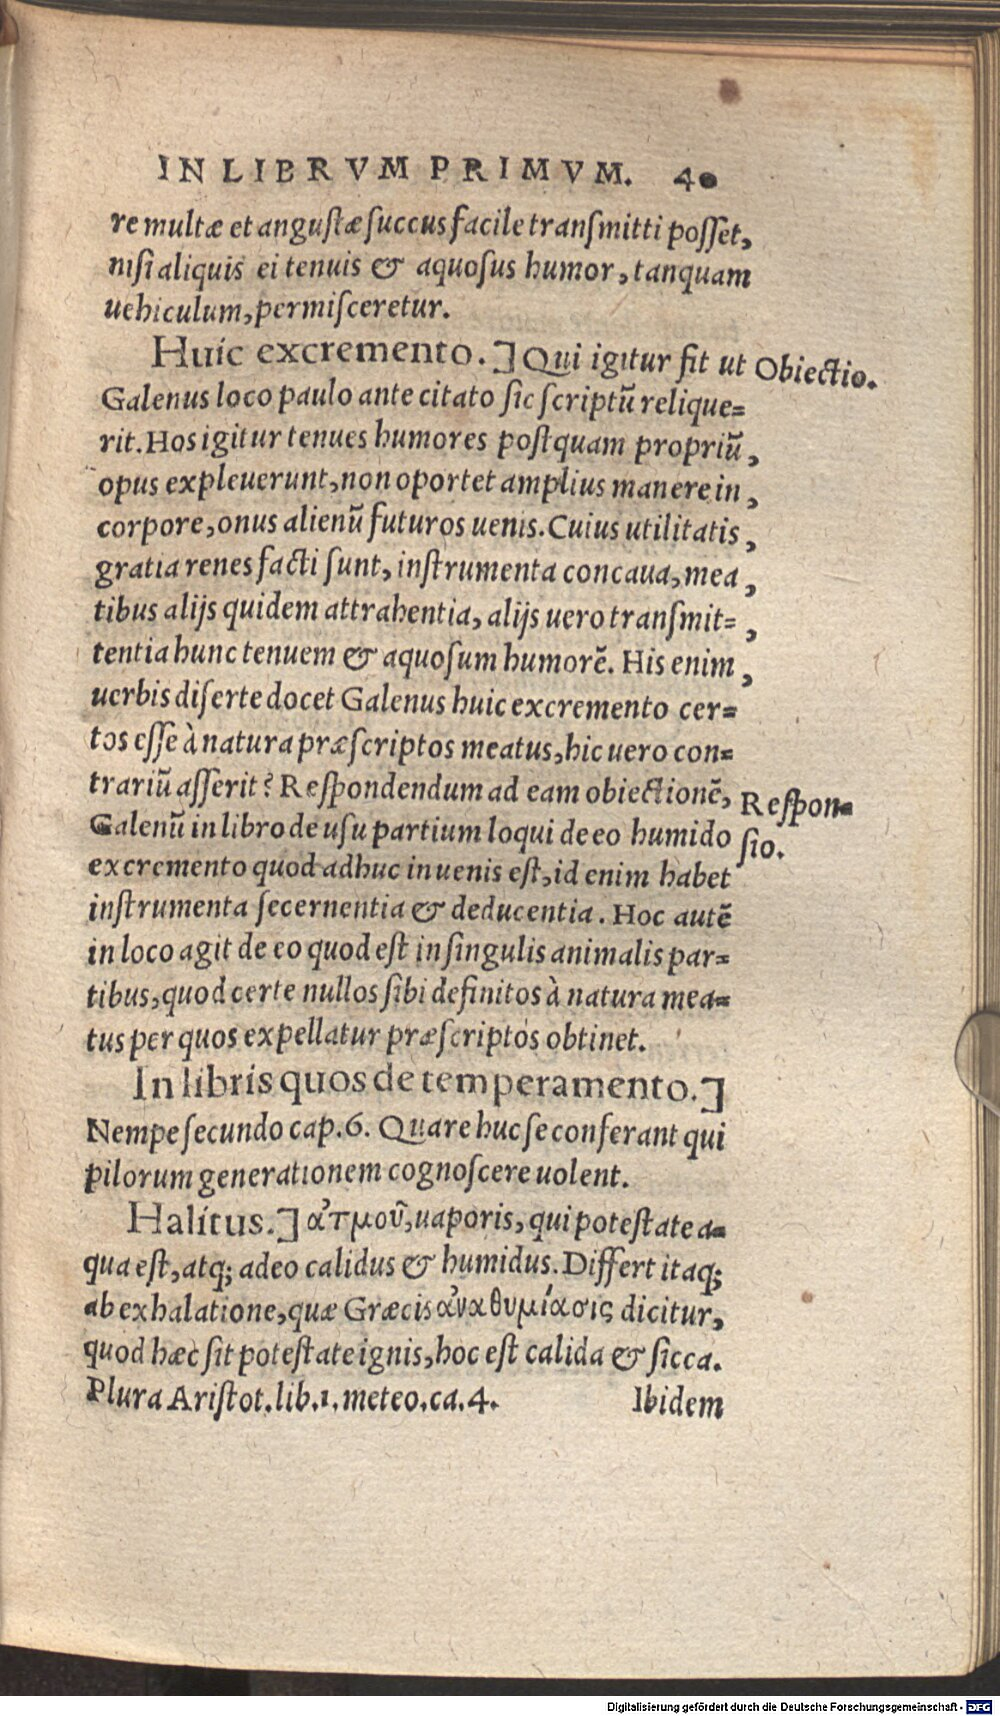 IN LIBRVM PRIMVM. 40
re multæ et angustæ succus facile transmitti posset,
nisi aliquis ei tenuis & aquosus humor, tanquam
uehiculum, permisceretur.
Huic excremento.] Qui igitur fit ut
Obiectio.
Galenus loco paulo ante citato sic scriptū relique=
rit. Hos igitur tenues humores postquam propriū ,
opus expleuerunt, non oportet amplius manere in ,
corpore, onus alienū futuros uenis. Cuius utilitatis ,
gratia renes facti sunt, instrumenta concaua, mea ,
tibus alijs quidem attrahentia, alijs uero transmit= ,
tentia hunc tenuem & aquosum humorē. His enim ,
uerbis diserte docet Galenus huic excremento cer=
tos esse à natura præscriptos meatus, hic uero con=
trariū asserit? Respondendum ad eam obiectionē,
Respon=
sio.
Galenū in libro de usu partium loqui de eo humido
excremento quod adhuc in uenis est, id enim habet
instrumenta secernentia & deducentia. Hoc autē
in loco agit de eo quod est in singulis animalis par=
tibus, quod certe nullos sibi definitos à natura mea=
tus per quos expellatur præscriptos obtinet.
In libris quos de temperamento.]
Nempe secundo cap. 6. Quare huc se conferant qui
pilorum generationem cognoscere uolent.
Halitus.] ἀτμοῦ, uaporis, qui potestate a=
qua est, atq; adeo calidus & humidus. Differt itaq;
ab exhalatione, quæ Græcis ἀναθυμίασις dicitur,
quod hæc sit potestate ignis, hoc est calida & sicca.
Plura Aristot. lib. 1. meteo. ca. 4. Ibidem
Digitalisierung gefördert durch die Deutsche Forschungsgemeinschaft - DFG